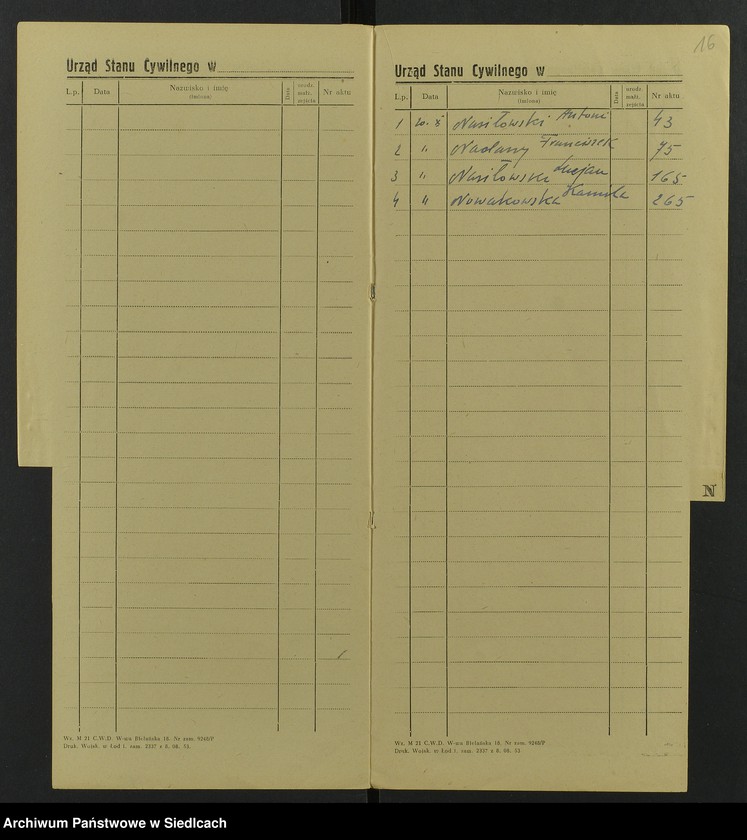 16
Urząd Stanu Cywilnego w
L.p. Data Nazwisko i imię (imiona) Data urodz. małż. zejścia Nr aktu
Urząd Stanu Cywilnego w
L.p. Data Nazwisko i imię (imiona) Data urodz. małż. zejścia Nr aktu
1 Nasiłowski Antoni 43
2 " Franciszek 75
3 " Nasiłowski Lucjan 165
4 " Nowakowska Kamila 265
N
Wz. M 21 C.W.D. W-wa Bielańska 18. Nr zam. 9260/P
Druk. Wojsk. w Łodzi. zam. 3337 z 6. 06. 53.
Wz. M 21 C.W.D. W-wa Bielańska 18. Nr zam. 9260/P
Druk. Wojsk. w Łodzi. zam. 3337 z 6. 06. 53.
Archiwum Państwowe w Siedlcach